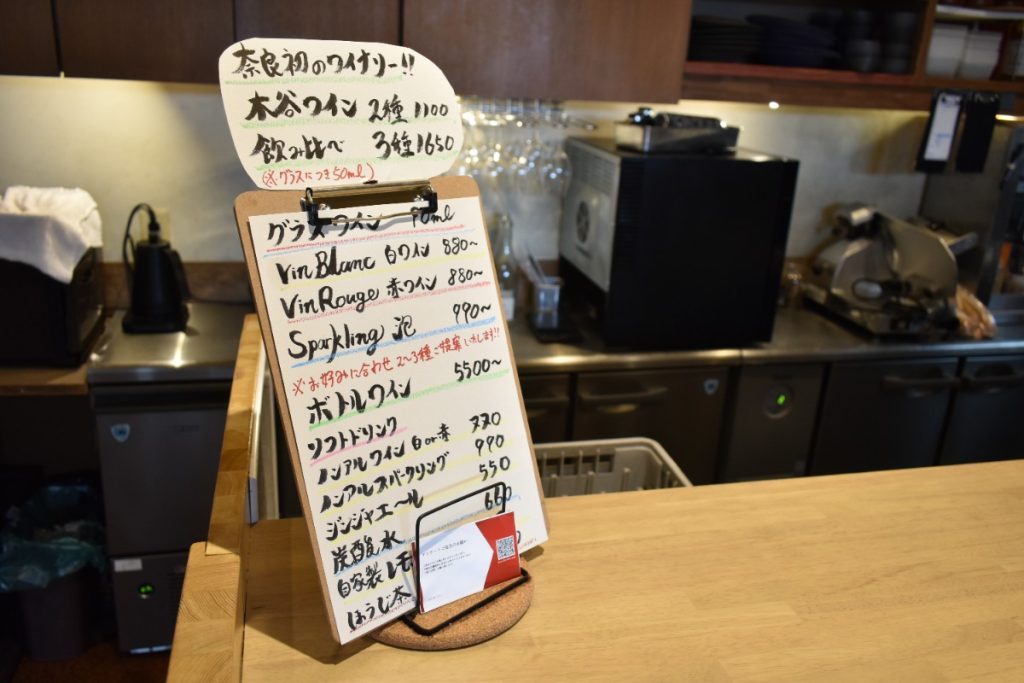 奈良初のワイナリー!!
木谷ワイン 2種 1100
飲み比べ 3種 1650
(※グラスにつき50ml)
グラスワイン 90ml
Vin Blanc 白ワイン 880~
Vin Rouge 赤ワイン 880~
Sparkling 泡 990~
※お好みに合わせ2~3種ご提案いたします!!
ボトルワイン 5500~
ソフトドリンク
ノンアルワイン 白or赤 770
ノンアルスパークリング 990
ジンジャエール 550
炭酸水 660
自家製レモ
ほうじ茶